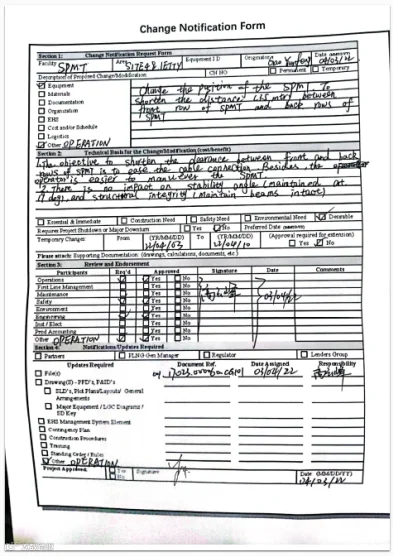 Change Notification Form
Section 1: Change Notification Request Form
Facility SPMT Area SITE4B JETTY Equipment I D Originator Date
Description of Proposed Change/Modification CH NO Permanent Temporary
Equipment
Materials
Documentation
Organization
EHS
Cost and/or Schedule
Logistics
Other OPERATION
Change the position of the SPMT to
shorten the distance between
front row of SPMT and back rows of
SPMT
Section 2: Technical Basis for the Change/Modification (cost/benefit)
1. The objective to shorten the clearance between front and back
rows of SPMT is to ease the cable connection. Besides, the
operator is easier to maneuver the SPMT.
2. There is no impact on stability angle (maintained at
7 deg), and structural integrity (maintain beams intact)
Essential & Immediate Construction Need Safety Need Environmental Need Desirable
Requires Project Shutdown or Major Downturn Yes No Preferred Date
Temporary Change: From (YR/MM/DD) To (YR/MM/DD) (Approval required for extension)
12/04/03 12/04/10 Yes No
Please attach: Supporting Documentation (drawings, calculations, documents, etc)
Section 3: Review and Endorsement
Participants Req'd Approved Signature Date Comments
Operations Yes No
First Line Management Yes No
Maintenance Yes No
Safety Yes No
Environment Yes No
Engineering Yes No
Ind / Elect Yes No
Prod Accounting Yes No
Other OPERATION Yes No
Section 4: Notifications/Updates Required
Partners PLNG Gen Manager Regulator Lenders Group
Updates Required Document Ref. Date Assigned Responsibility
File(s)
Drawing(s) - PFD's, P&ID's
SLD's, Plot Plans/Layouts/ General
Arrangements
Major Equipment / LGC Diagrams /
SD Key
EHS Management System Element
Contingency Plan
Construction Procedures
Training
Standing Order / Rules
Other OPERATION
Project Approved: Yes No Signature Date (MM/DD/YY)